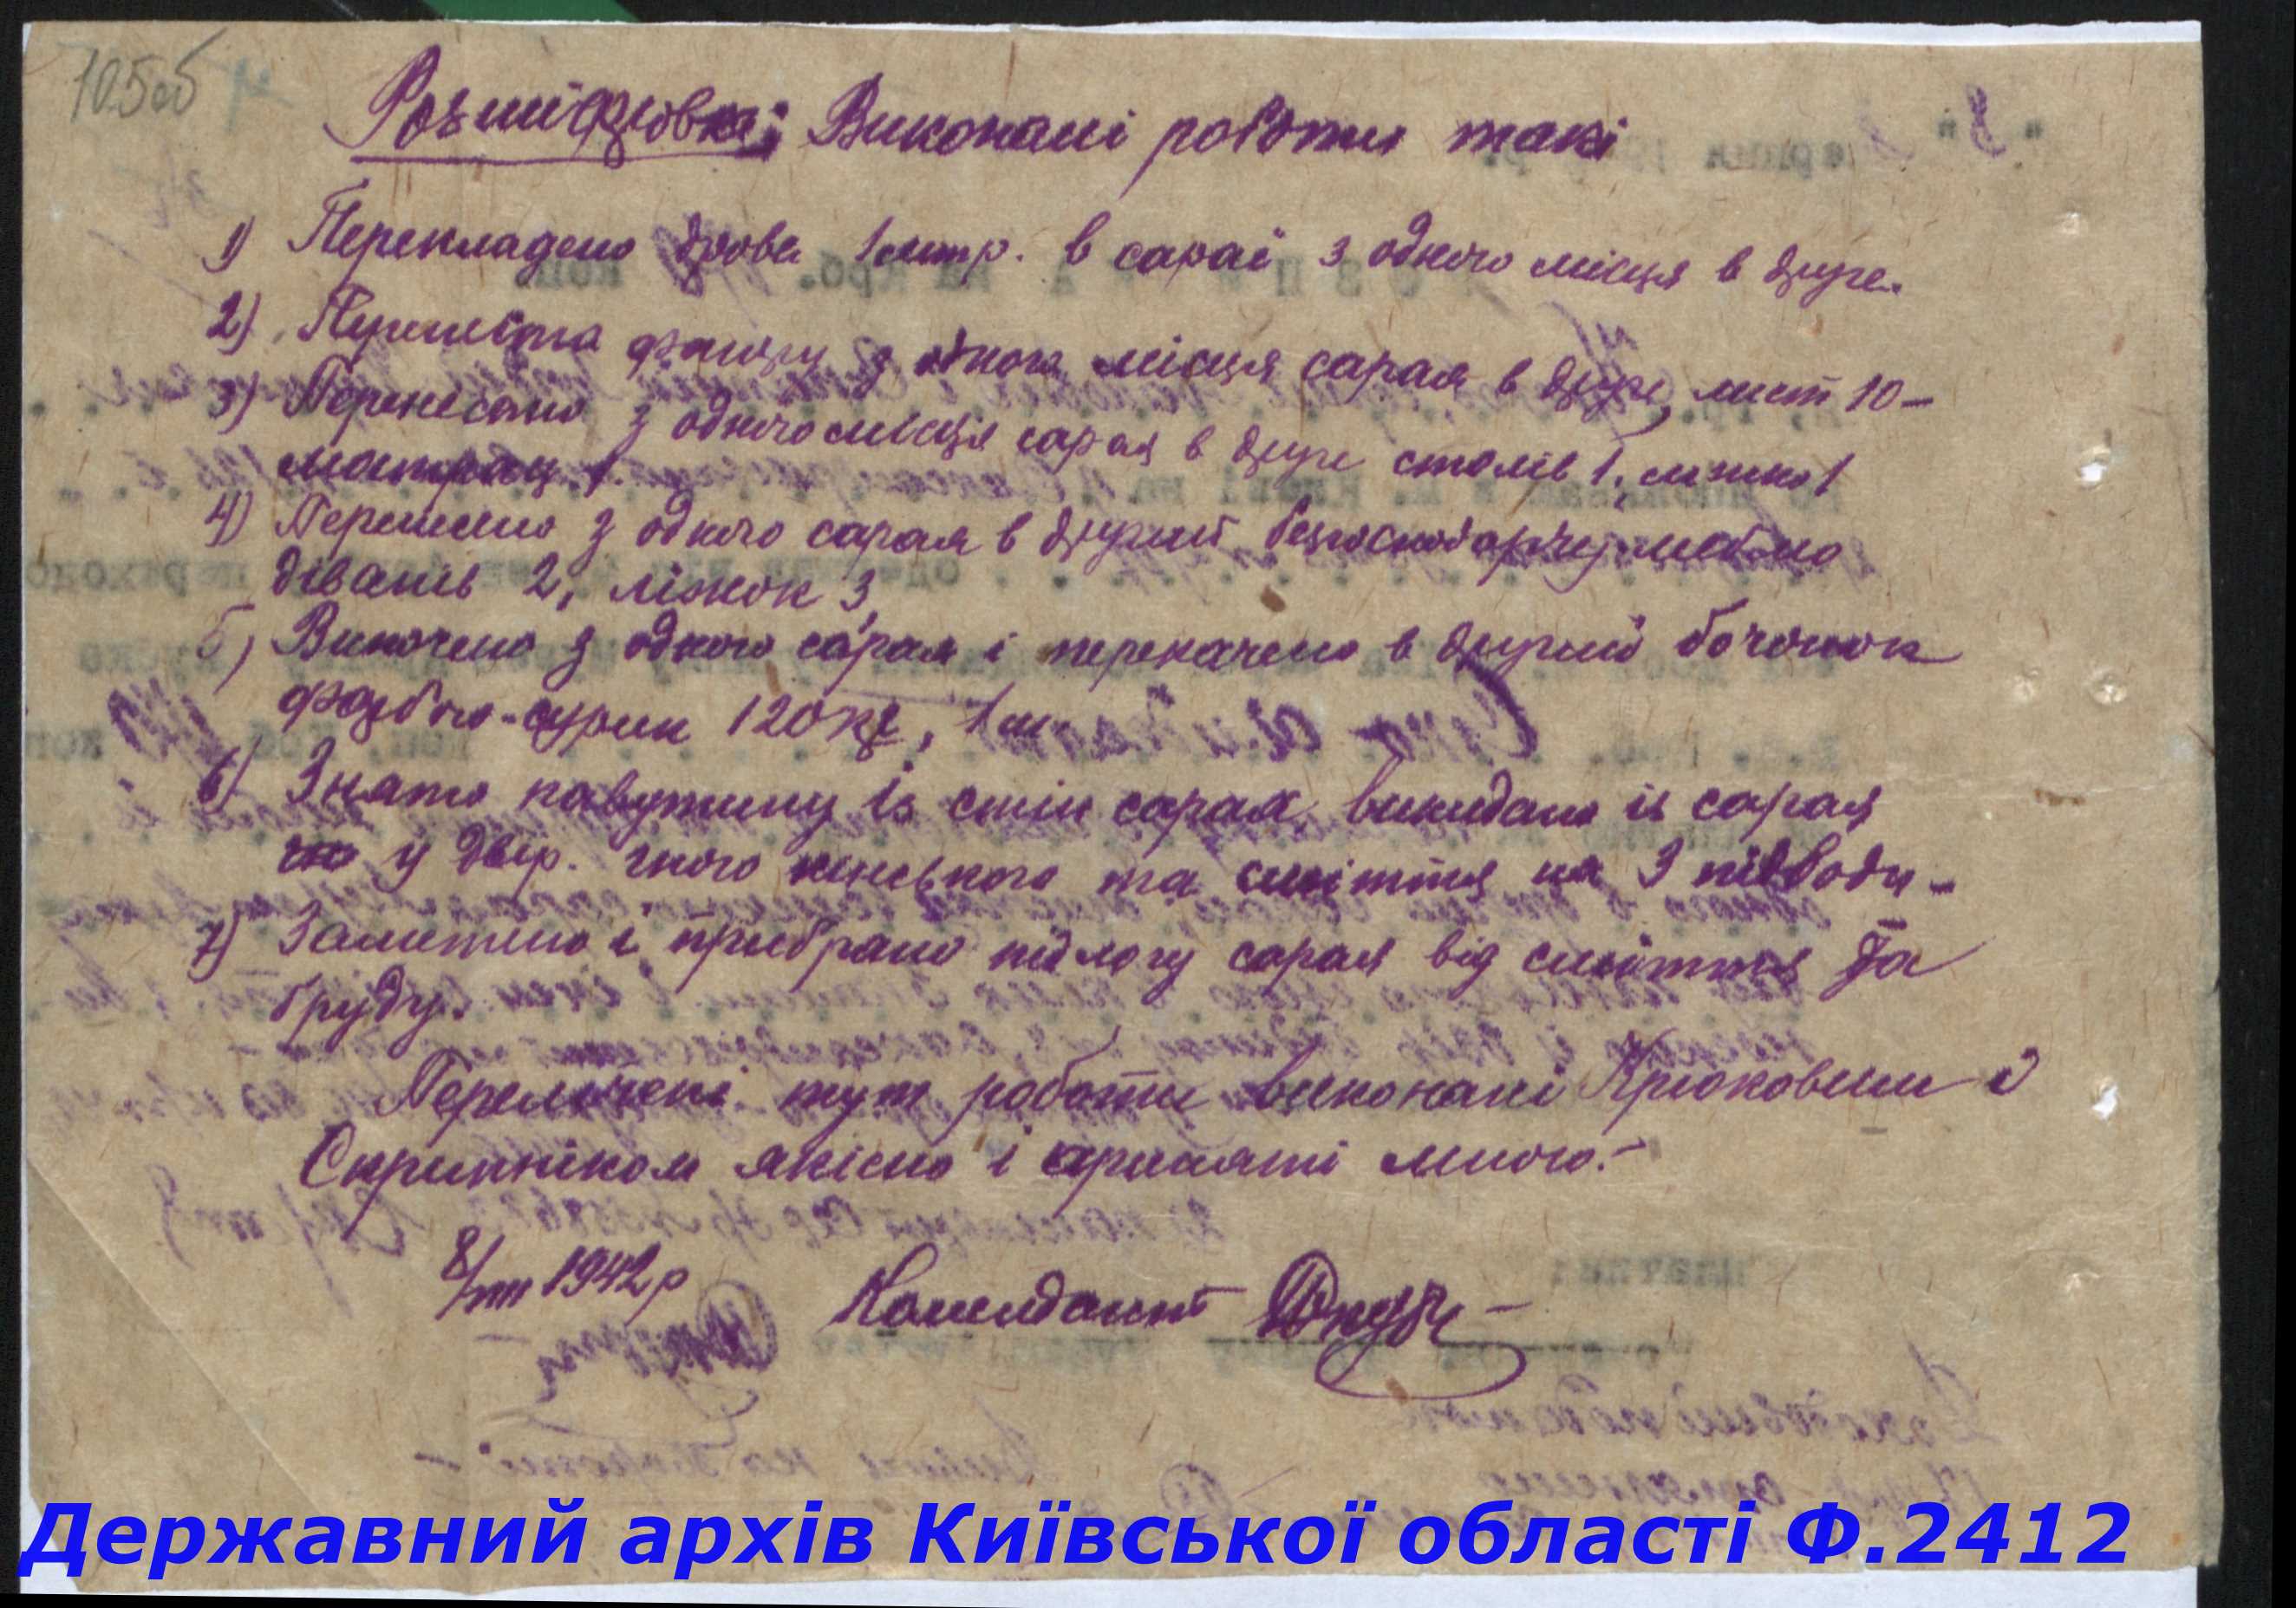 105об
Розшифровка; Виконані роботи такі
1) Перекладено дрова 1 смтр. в сараї з одного місця в друге.
2) фанеру з одного місця сарая в друге, лист 10 –
3) Перенесено з одного місця сарая в друге столів 1, ліжко 1
матрац 1.
4) Перенесено з одного сарая в другий
діванів 2, ліжок 3,
5) Викочено з одного сарая і перекачено в другий бочонок
фарбою-сурик 120 кг, 1 шт
6) Знято павутину із стін сарая, викидано із сарая
у двір. гною кінського та сміття на 3 підводи –
7) Заметено і прибрано підлогу сарая від сміття та
бруду.
Перелічені тут роботи виконані Крюковим і
Скрипніком якісно і приняті мною. –
8/VIII 1942 р
Комендант
Державний архів Київської області Ф.2412